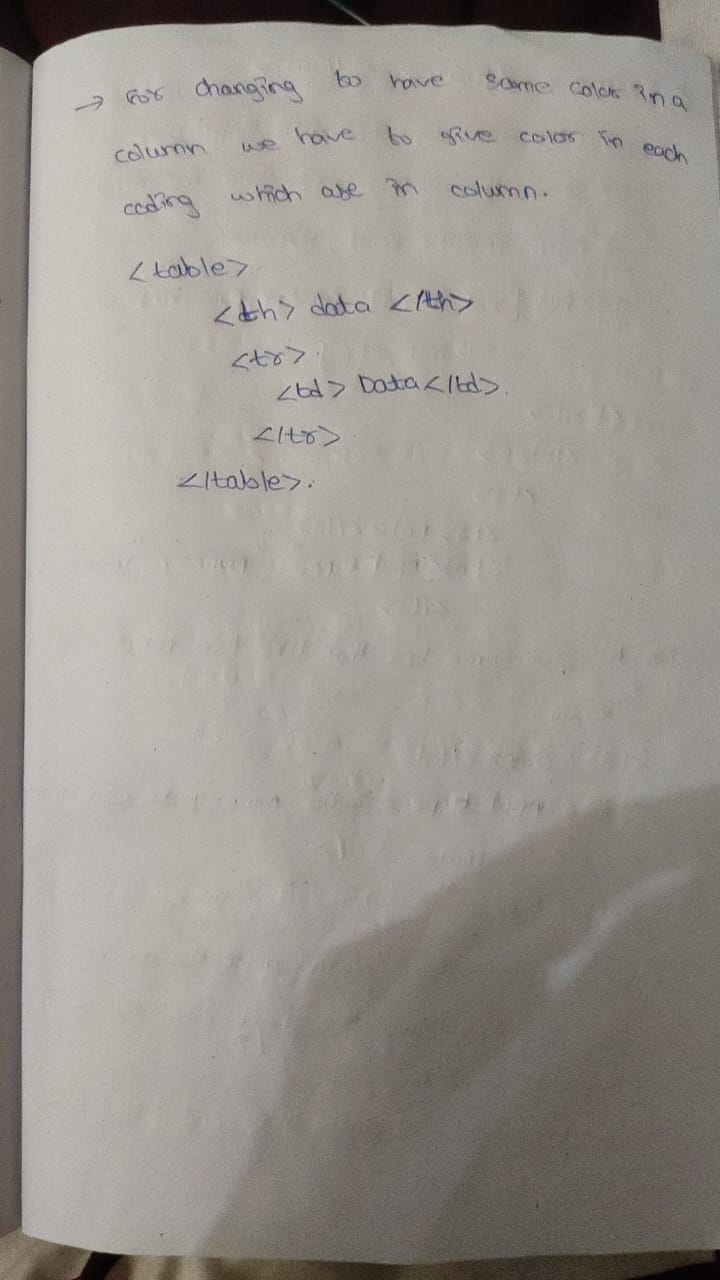 → For changing to have same color in a
column we have to give color in each
coding which are in column.
<table>
<th> data </th>
<tr>.
<td> Data </td>.
</tr>
</table>.